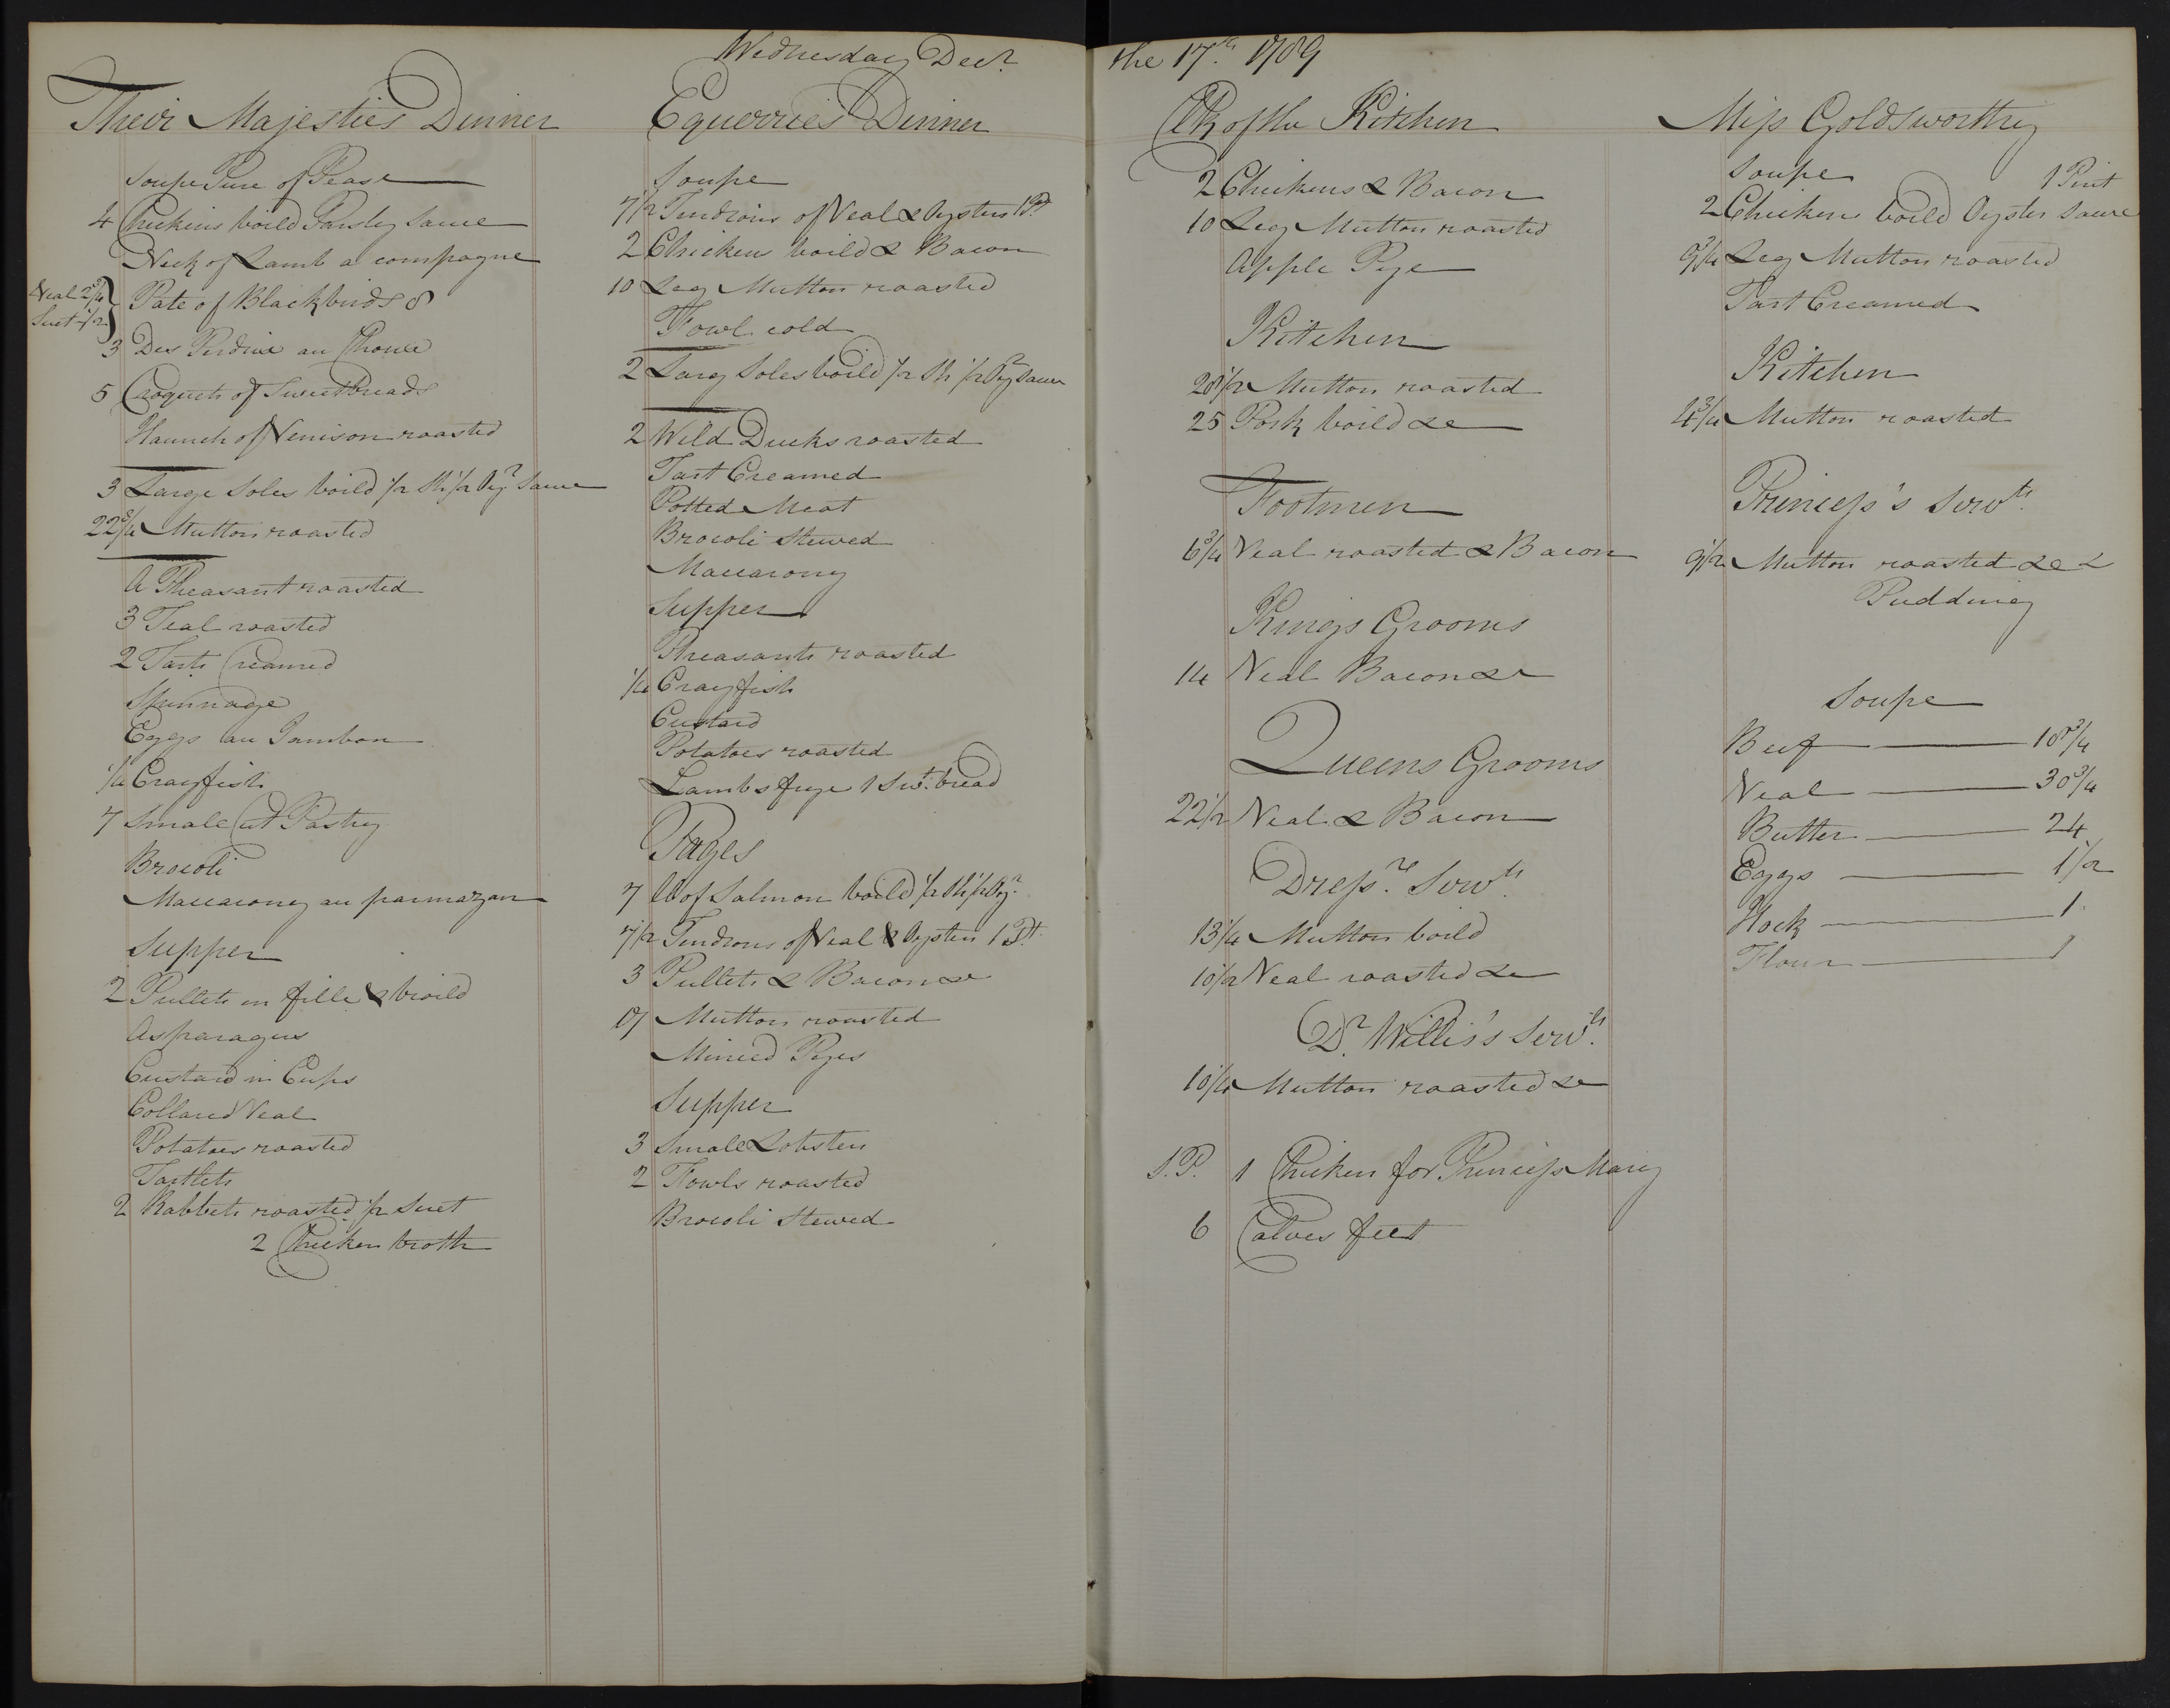 Wednesday Decr. the 17th. 1789
Their Majesties Dinner
Soupe Pure of Pease
4 Chickens boild Parsley Sauce
Neck of Lamb a compagne
Veal 2 3/4
Suet 1/2
Pate of Blackbirds 8
3 Des Perdrix au Choux
5 Croquets of Sweetbreads
Haunch of Venison roasted
3 Large Soles boild 1/2 Sh 1/2 Oyr Sauce
22 3/4 Mutton roasted
A Pheasant roasted
3 Teal roasted
2 Tarts Creamed
Spinnage
Eggs au Jambon
1/4 Crayfish
7 Small Cut Pastry
Brocoli
Maccarony au parmazan
Supper
2 Pullets in fille & broild
Asparagus
Custard in Cups
Collared Veal
Potatoes roasted
Tartlets
2 Rabbets roasted 1/2 Suet
2 Chicken broth
Equerries Dinner
Soupe
7 1/2 Tendrons of Veal & Oysters 1 Pt
2 Chicken boild & Bacon
10 Leg Mutton roasted
Fowl cold
2 Larg Soles boild 1/2 Sh 1/2 Oyr Sauce
2 Wild Ducks roasted
Tart Creamed
Potted Meat
Brocoli Stewed
Maccarony
Supper
Pheasants roasted
1/4 Crayfish
Custard
Potatoes roasted
Lambs frye 1 Swt. bread
Pages
7 lb of Salmon boild 1/2 Sh 1/2 Oyr.
7 1/2 Tendrons of Veal & Oysters 1 Pt.
3 Pullets & Bacon &c
17 Mutton roasted
Minced Pyes
Supper
3 Small Lobsters
2 Fowls roasted
Brocoli Stewed
Clk of the Kitchen
2 Chickens & Bacon
10 Leg Mutton roasted
Apple Pye
Kitchen
28 1/2 Mutton roasted
25 Pork boild &c
Footmen
6 3/4 Veal roasted & Bacon
Kings Grooms
14 Veal Bacon &c
Queens Grooms
22 1/2 Veal & Bacon
Dressrs. Servts.
13 1/4 Mutton boild
10 1/2 Veal roasted &c
Dr. Willis's Servts.
10 1/4 Mutton roasted &c
S.P. 1 Chicken for Princess Mary
6 Calves feet
Miss Goldsworthy
Soupe 1 Pint
2 Chicken boild Oyster Sauce
9 3/4 Leg Mutton roasted
Tart Creamed
Kitchen
4 3/4 Mutton roasted
Princess's Servts.
9 1/2 Mutton roasted &c &
Pudding
Soupe
Beef 18 3/4
Veal 30 3/4
Butter 24
Eggs 1 1/2
Hock 1
Flour 1